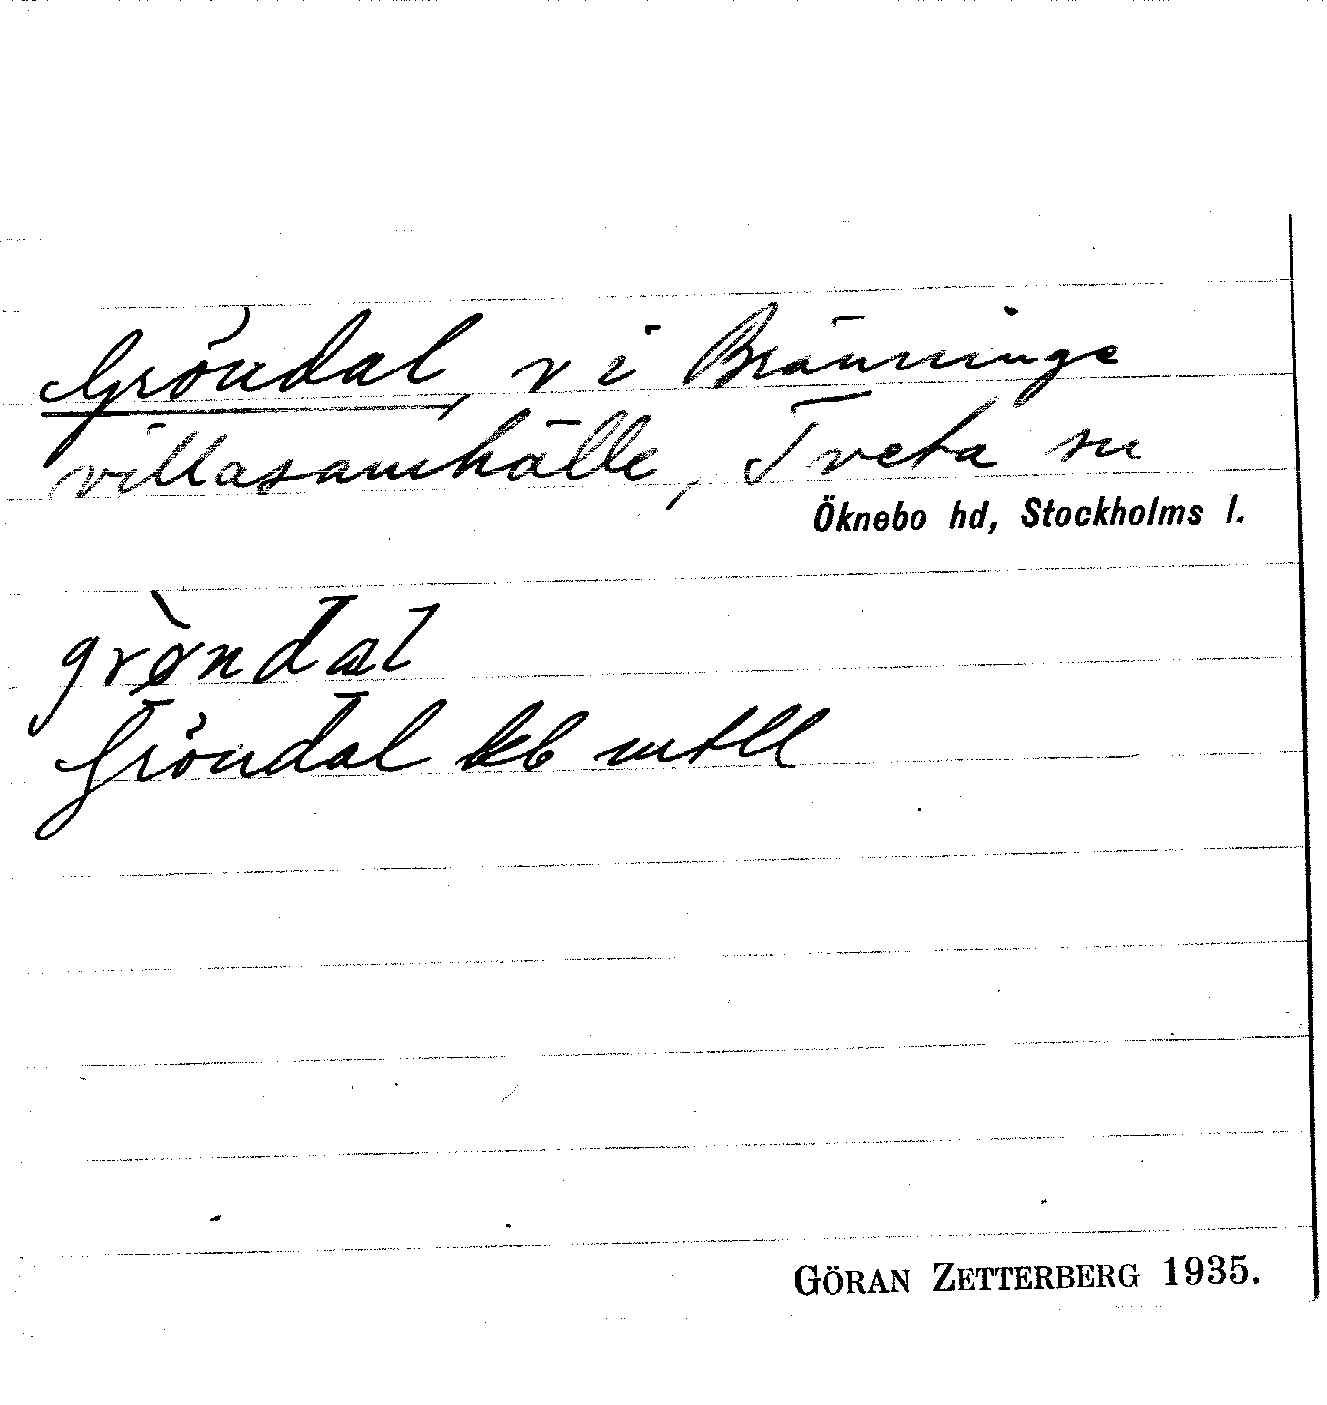 Gröndal, v i Bränninge
villasamhälle, Tveta sn
Öknebo hd, Stockholms l.
grø̀ndal
Gröndal kb mtll
GÖRAN ZETTERBERG 1935.